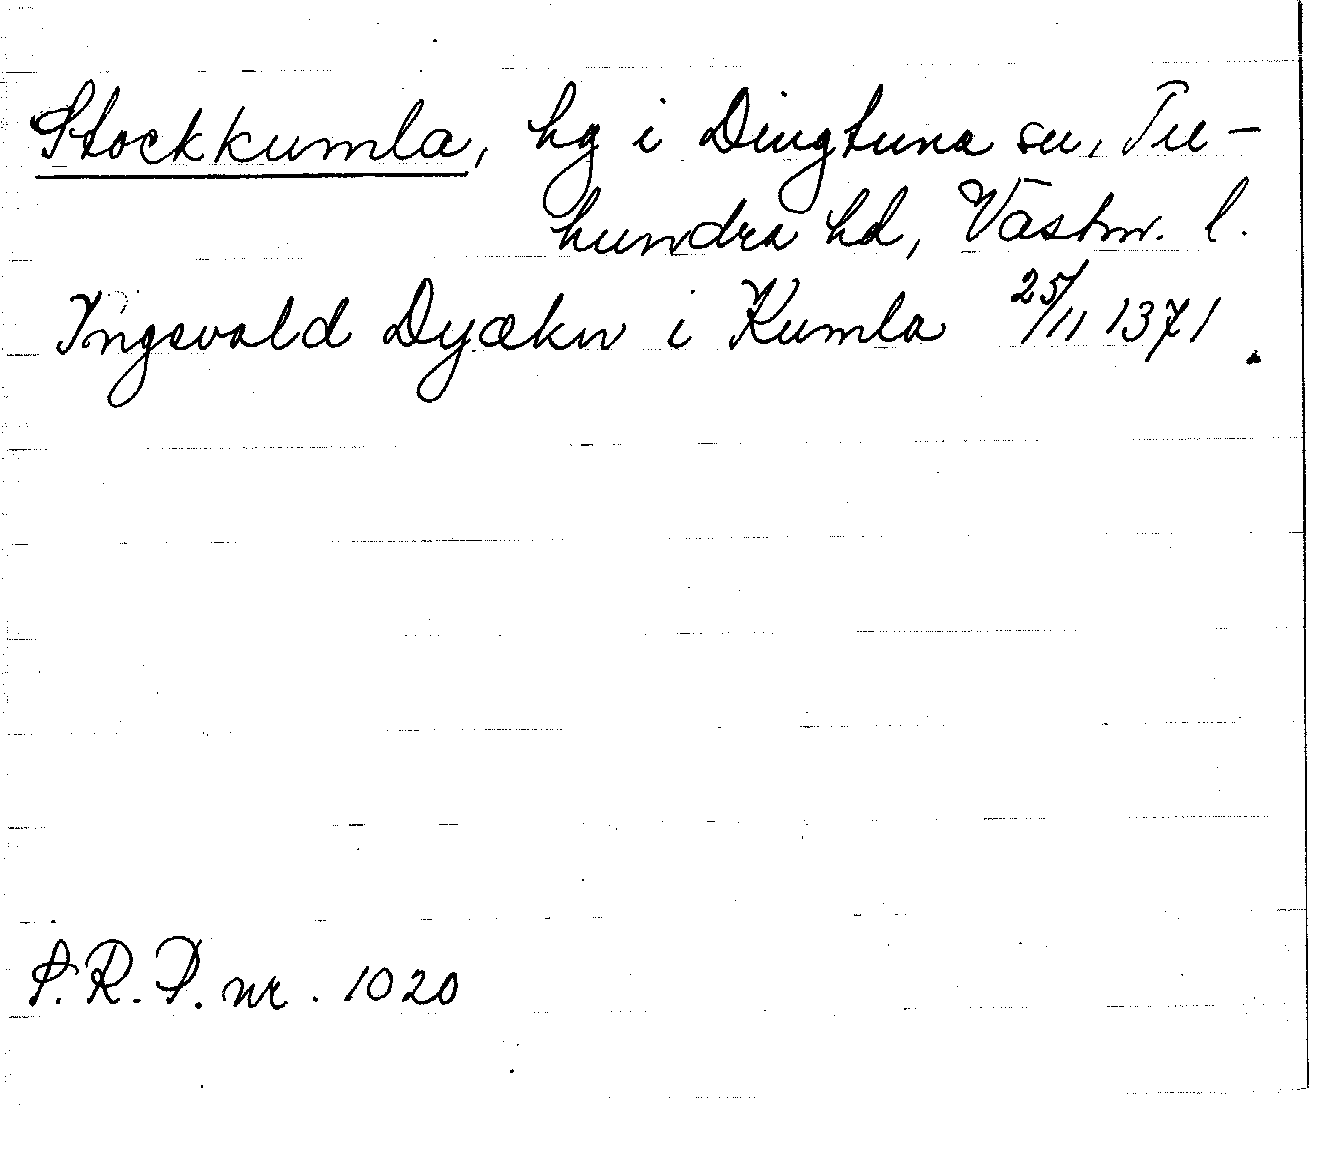 Stockkumla, hg i Dingtuna sn, Tu-
hundra hd, Västm. l.
Ingevald Dyækn i Kumla 25/11 1371.
S.R.P. nr. 1020